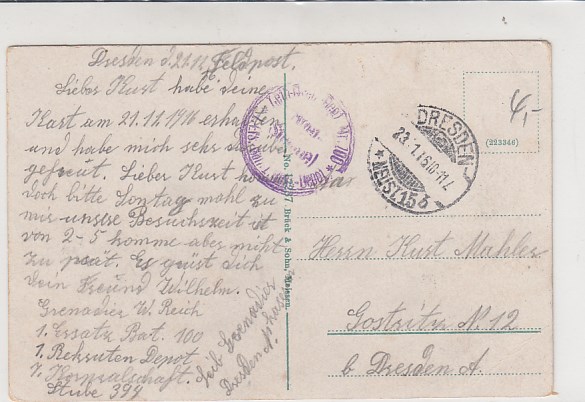 Dresden d. 21.1.16 Feldpost.
Lieber Kurt habe deine
Kart am 21.1.1916 erhalten
und habe mich sehr darüber
gefreut. Lieber Kurt kom
doch bitte Sontag mahl zu
mir unsre Besuchszeit ist
von 2-5 komme aber nicht
zu spät. Es grüst dich
dein Freund Wilhelm.
Grenadier W. Reich
1. Ersatz Bat. 100
1. Rekruten Depot
7. Korporalschaft.
Stube 394
Leib Grenadier
Dresden A.
No. 17 Brück & Sohn, Meissen.
DRESDEN
23.1.16. 10-11 V.
* NEUST. 15 b
(223346)
4,-
Herrn Kurt Mahler
Gostritz № 12
b Dresden A.